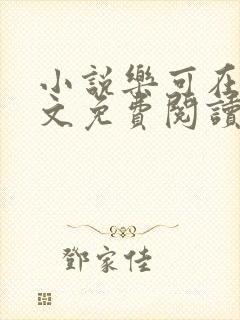 小說樂可在
文免費閱讀
鄧家佳